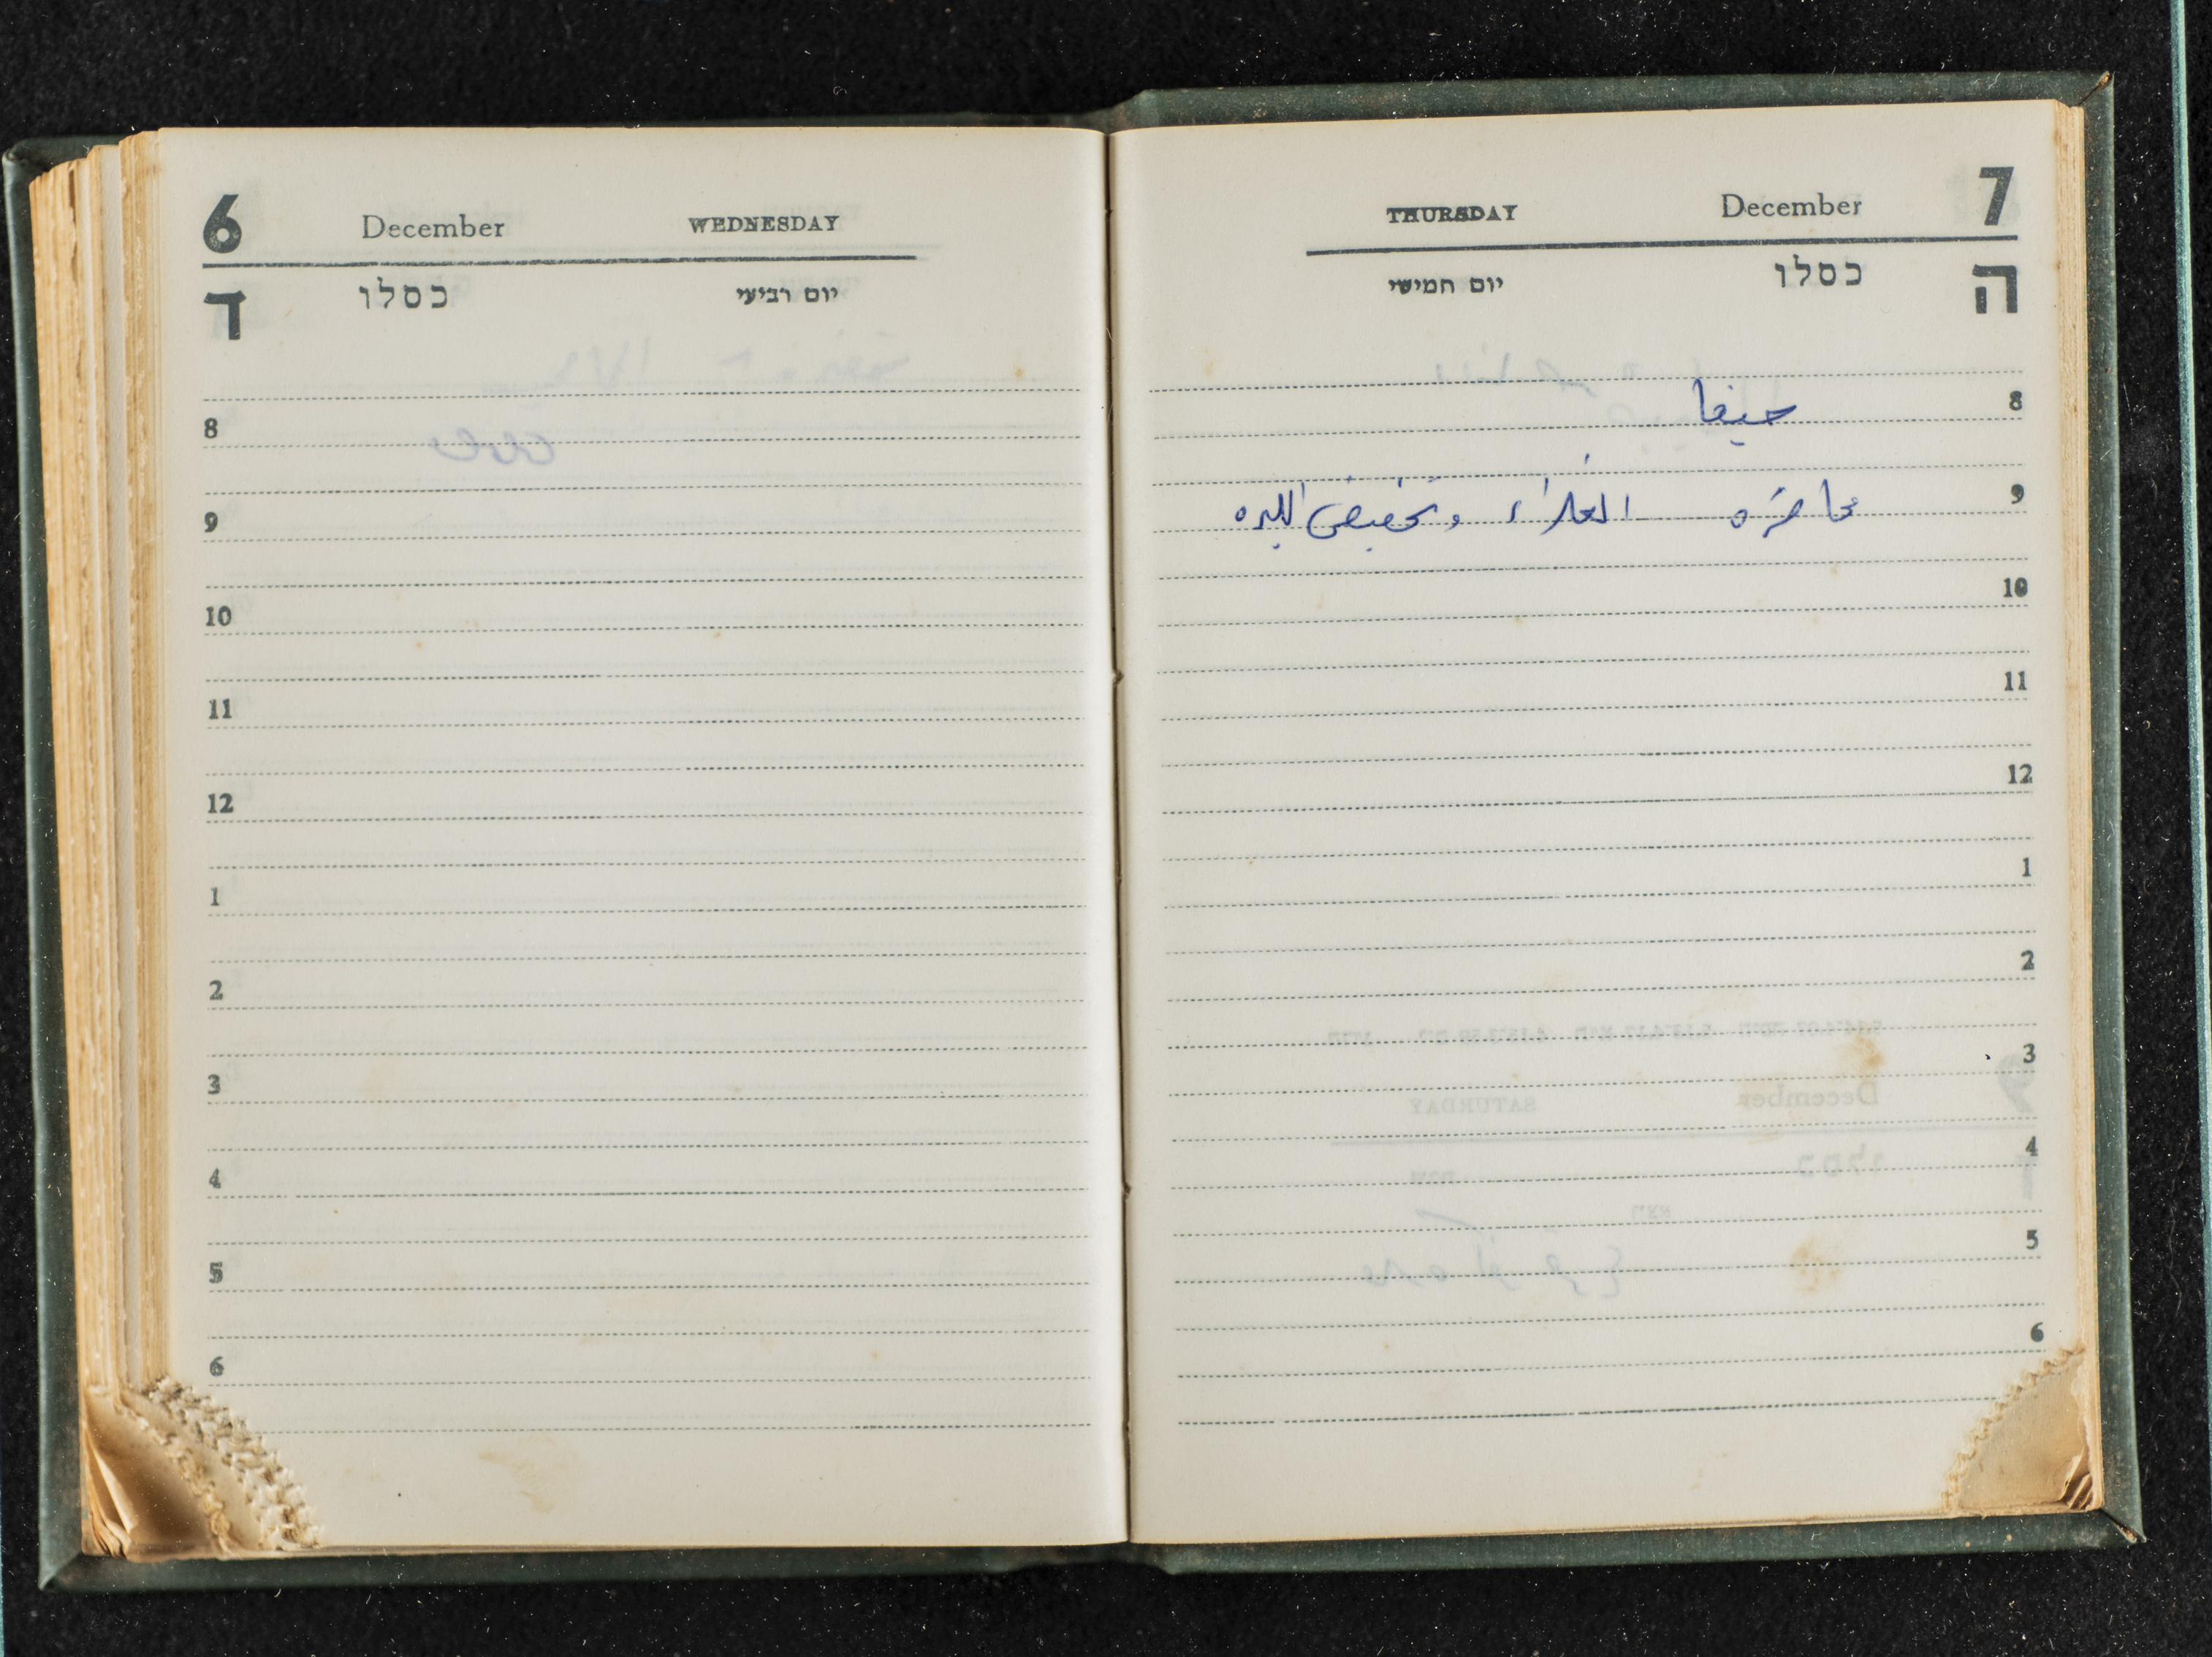 6 December WEDNESDAY
ד כסלו יום רביעי
8
9
10
11
12
1
2
3
4
5
6
THURSDAY December 7
ה כסלו יום חמישי
8 حيفا
9 محاضره الغلاء وتخفيض الليره
10
11
12
1
2
3
4
5
6